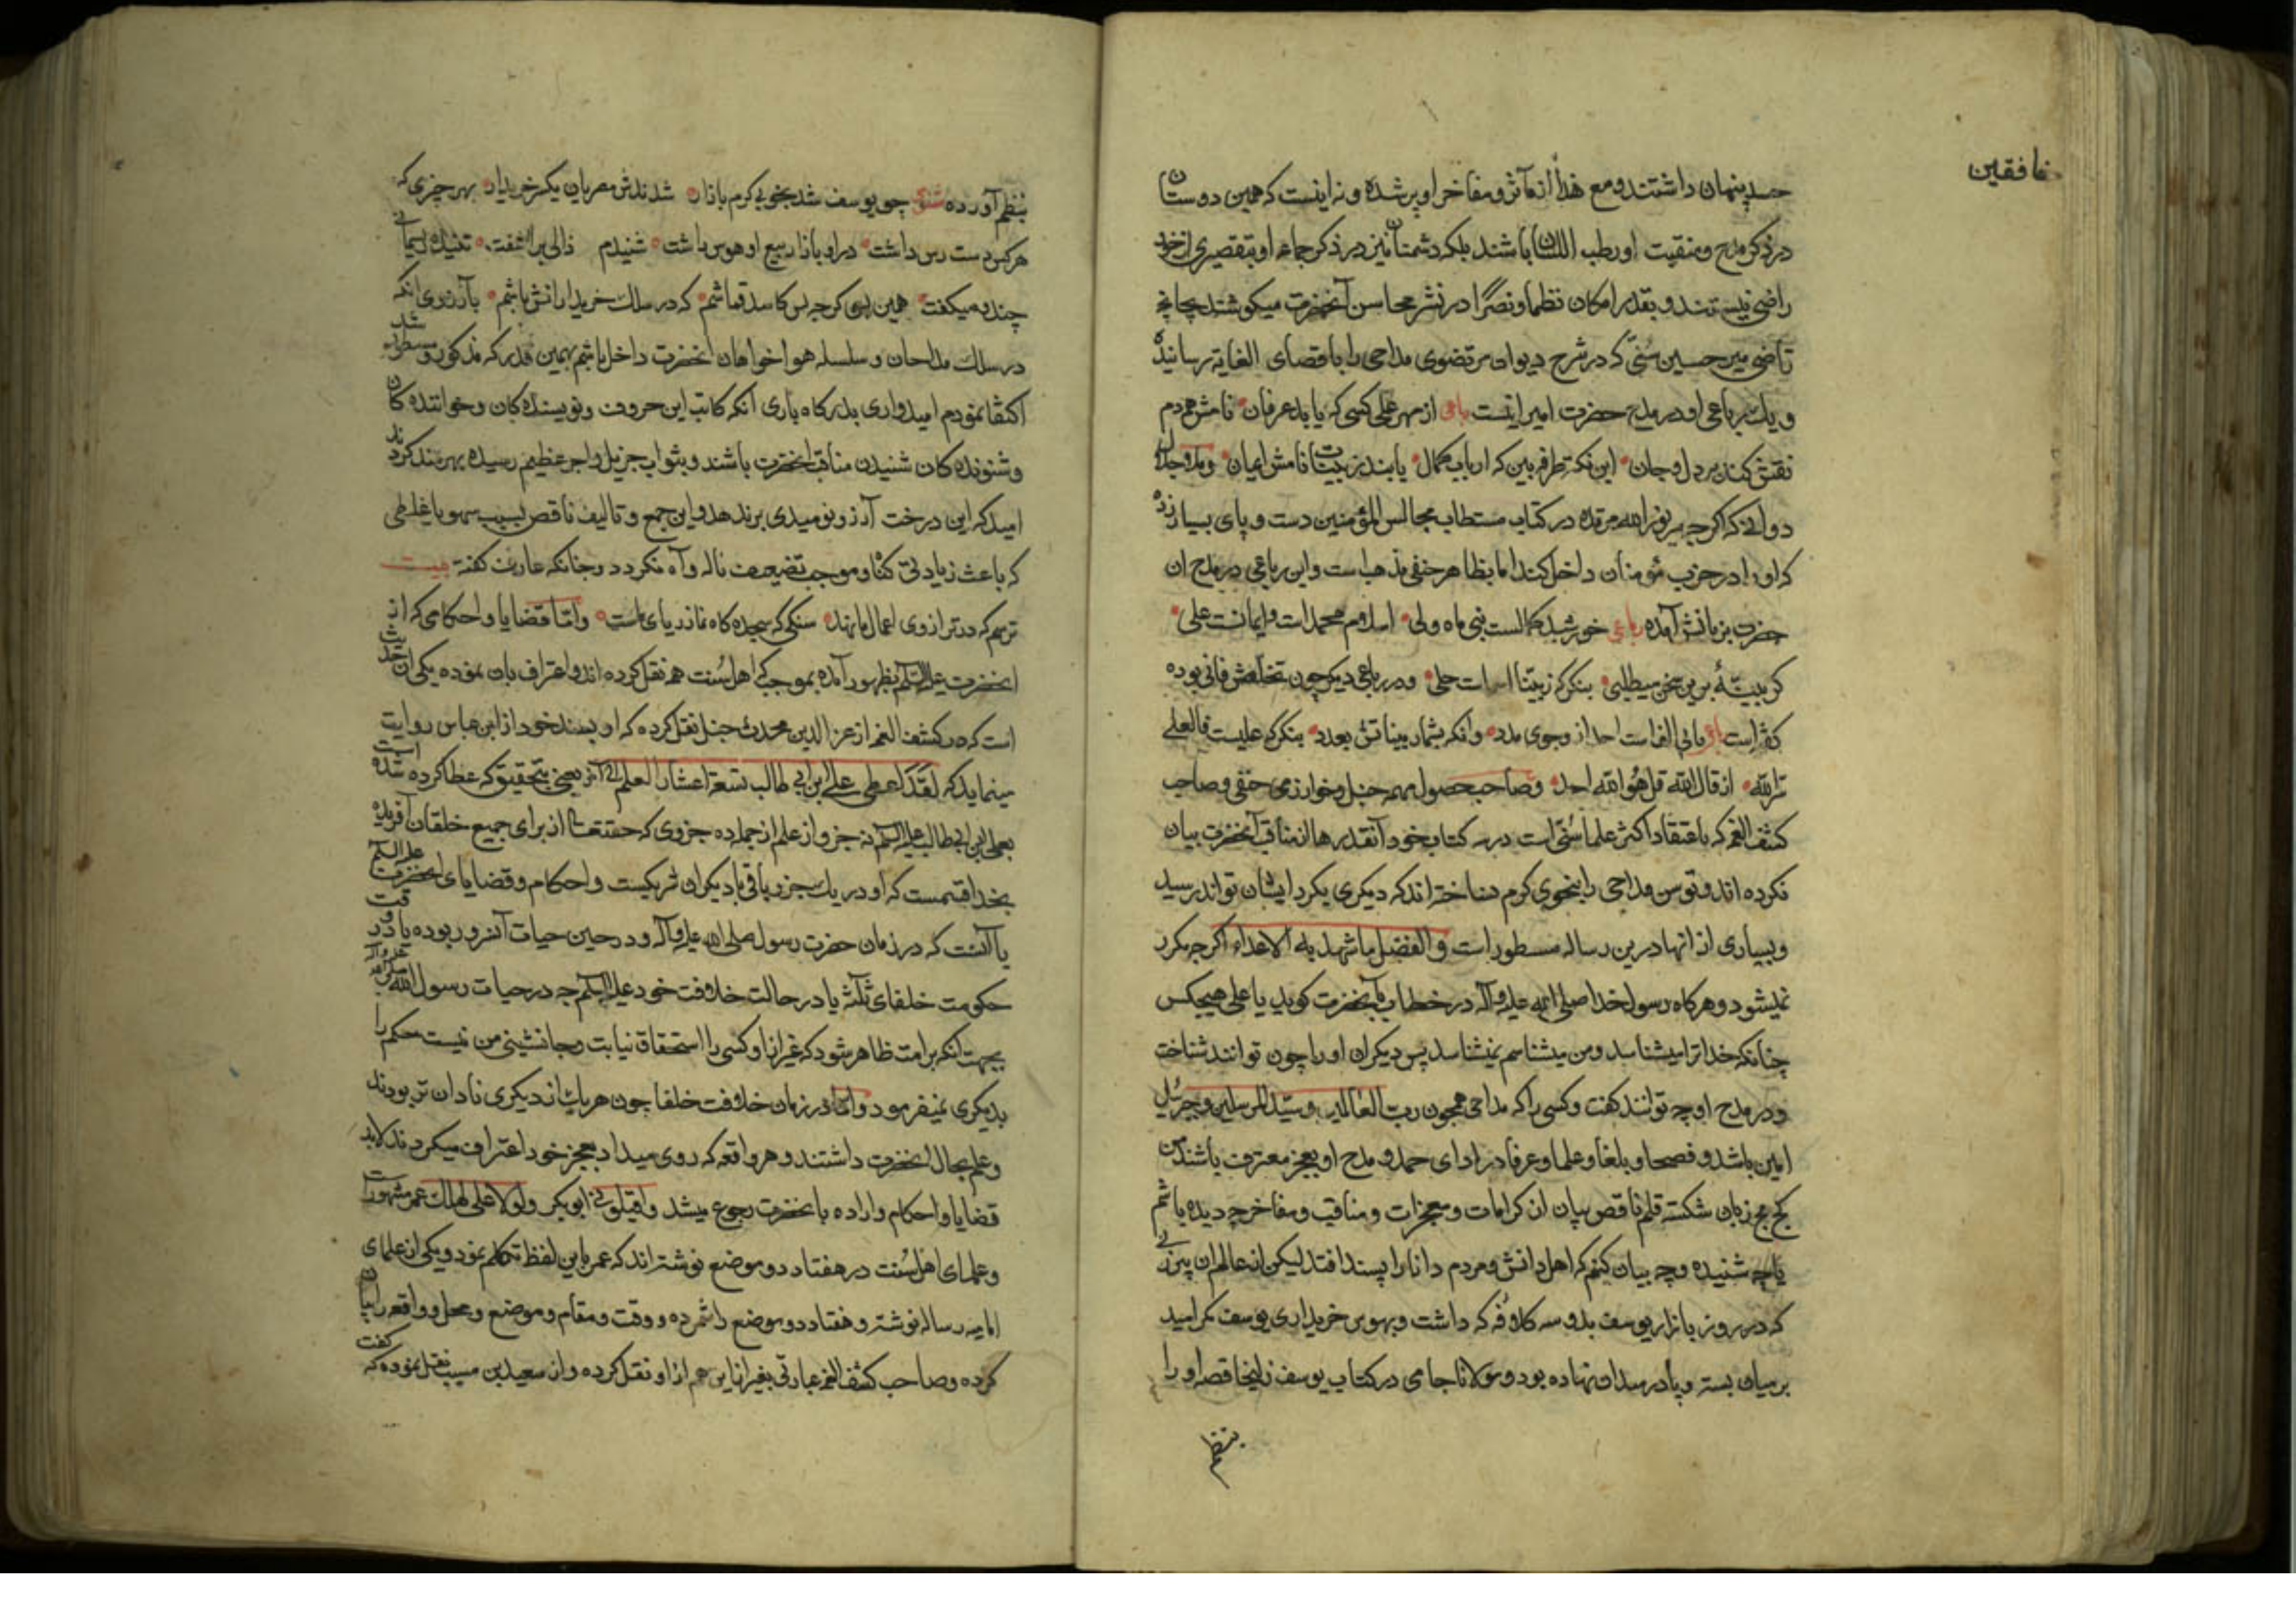 خافقین
حسد پنهان داشتند و مع هذا از مآثر و مفاخر او پر شده و نه اینست که همین دوستان
در ذکر مدح و منقبت او رطب اللسان باشند بلکه دشمنان نیز در ذکر محامد او بتقصیری از خود
راضی نیستند و بقدر امکان نظما و نصرا در نشر محاسن آنحضرت میکوشند چنانچه
قاضی میر حسین سنی که در شرح دیوان مرتضوی مداحی را باقصای الغایه رسانیده
و یک رباعی او در مدح حضرت امیر اینست رباعی از مهر علی کسی که یابد عرفان نامش همه دم
نقش کند بر دل و جان این نکته طرفه بین که ارباب کمال یابند ز بینات نامش ایمان و ملا جلال
دوانی که اگرچه میر نور الله مرقده در کتاب مستطاب مجالس المؤمنین دست و پای بسیار زده
که او را در حزب مؤمنان داخل کند اما بظاهر حنفی مذهب است و این رباعی در مدح ان
حضرت بزبانش آمده رباعی خورشید کمالست نبی ماه ولی اسلام محمد است و ایمانست علی
گر بینهٔ برین سخن میطلبی بنگر که ز بینات اسماست جلی و در رباعی دیگر چون تخلصش فانی بوده
گفته است رباعی فانی الف است احد از وجوی مدد وانکه بشمار بیناتش بعدد بنگر که علیست فالعلی
سر الله از قال الله قل هو الله احد و صاحب فصول مهمه حنبل و خوارزمی حنفی و صاحب
کشف الغمه که باعتقاد اکثر علما سنی است در سه کتاب خود آنقدرها از مناقب آنحضرت بیان
نکرده اند و توسن مداحی را بنحوی گرم نساخته اند که دیگری بگرد ایشان تواند رسید
و بسیاری از انها درین رساله مسطور است و الفضل ما شهد به الاعداء اگرچه مکرر
نمیشود و هرگاه رسول خدا صلی الله علیه و آله در خطاب بآنحضرت گوید یا علی هیچکس
چنانکه خدا ترا میشناسد و من میشناسم نمیشناسد پس دیگران او را چون توانند شناخت
و در مدح او چه توانند گفت و کسی را که مداحی همچون رب العالمین و سید المرسلین و جبرئیل
امین باشد و فصحا و بلغا و علما و عرفا در ادای حمد و مدح او بعجز معترف باشند من
کج مج زبان شکسته قلم ناقص بیان ان کرامات و معجزات و مناقب و مفاخر چه دیده باشم
یا چه شنیده و چه بیان کنم که اهل دانش و مردم دانا را پسند افتد لیکن از عالم ان پیرزنی
که در روز بازار یوسف بدو سه کلافه که داشت و بهوس خریداری یوسف کمر امید
بر میان بسته و پا در میدان نهاده بود و مولانا جامی در کتاب یوسف زلیخا قصه او را
بنظم
بنظم آورده مثنوی چو یوسف شد بخوبی گرم بازار شدندش مصریان یکسر خریدار بهر چیزی که
هر کس دست رس داشت در او بازار بیع او هوس داشت شنیدم زالی براشفت تنیده ریسمانی
چند و میگفت همین بس گرچه بس کاسد قماشم که در سلک خریدارانش باشم بآرزوی انکه
در سلک مداحان و سلسله هواخواهان آنحضرت داخل باشم بهمین قدر که مذکور و مسطور شد
اکتفا نمودم امیدواری بدرگاه باری آنکه کاتب این حروف و نویسنده کان و خواننده کان
و شنونده کان شنیدن مناقب آنحضرت باشند و بثواب جزیل و اجر عظیم رسیده بهره مند گردند
امید که این درخت آرزو نومیدی بر ندهد و این جمع و تالیف ناقص بسبب سهو یا غلطی
که باعث زیادتی گناه و موجب تضییف ناله و آه نگردد چنانکه عارف گفته بیت
ترسم که در ترازوی اعمال ما نهند سنگی که سجده گاه نماز ریای ماست و اما قضایا و احکامی که از
آنحضرت علیه السلام بظهور آمده بموجبی که اهل سنت هم نقل کرده اند و اعتراف بان نموده یکی ان حدیث
است که در کشف الغمه از عز الدین محدث حنبل نقل کرده که او بسند خود از ابن عباس روایت
مینماید که لقد اعطی علی ابن ابی طالب تسعة اعشار العلم الی آخر یعنی بتحقیق که عطا کرده شده است
بعلی ابن ابی طالب علیه السلام نه جزو از علم از جمله ده جزوی که حقتعالی از برای جمیع خلقان آفریده
بخدا قسمست که او در یک جزو باقی با دیگران شریکست و احکام و قضایای آنحضرت علیه السلام
یا آنست که در زمان حضرت رسول صلی الله علیه و آله و در حین حیات آنسرور بوده یا در وقت
حکومت خلفای ثلثه یا در حالت خلافت خود علیه السلم چه در حیات رسول الله صلی الله علیه و آله
بجهت انکه بر امت ظاهر شود که غیر از او کسی را استحقاق نیابت و جانشینی من نیست حکم را
بدیگری نمیفرمود و اما در زمان خلافت خلفا چون هر یک از دیگری نادان تر بودند
و علم بحال آنحضرت داشتند و هر واقعه که روی میداد بعجز خود اعتراف میکردند لابد
قضایا و احکام وارده بآنحضرت رجوع میشد و اقیلونی ابوبکر و لولا علی لهلک عمر مشهور است
و علمای اهل سنت در هفتاد دو موضع نوشته اند که عمر باین لفظ تکلم نمود و یکی از علمای
امامیه رساله نوشته و هفتاد دو موضع را شمرده و وقت و مقام و موضع و محل و واقعه را بیان
کرده و صاحب کشف الغمه عبارتی بغیر از این هم از او نقل کرده و از سعید بن مسیب نقل نموده که گفت